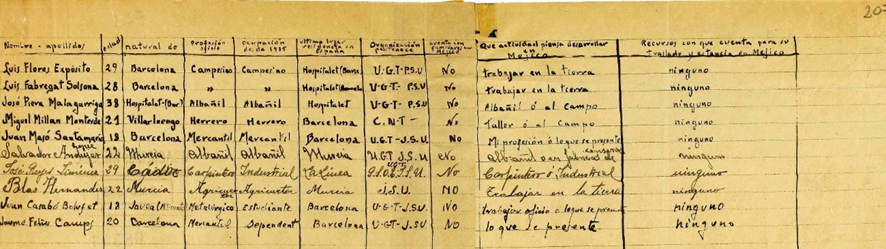 207
Nombre - apellidos edad natural de profesión oficio ocupación de 1935 última lugar residencia en España Organización pertenece cuenta con familiares en Méjico Que actividad piensa desarrollar en Mejico Recursos con que cuenta para su traslado y estancia en Méjico
Luis Flores Expósito 29 Barcelona Campesino Campesino Hospitalet (Barc. U.G.T- P.S.U No trabajar en la tierra ninguno
Luis Fabregat Solsona 28 Barcelona " " Hospitalet (Barcelona U.G.T- P.S.U No trabajar en la tierra ninguno
José Piera Malagarriga 38 Hospitalet-(Bar) Albañil Albañil Hospitalet U-G-T- P.S.U No Albañil ó al campo ninguno
Miguel Millan Monterde 21 Villarluengo Herrero Herrero Barcelona C.N.T- No Taller ó al Campo ninguno
Juan Masó Santamaria 18 Barcelona Mercantil Mercantil Barcelona U.G.T-J.S.U. No Mi profesión ó lo que se presente ninguno
Salvador Andujar Lopez 22 Murcia Albañil Albañil Murcia U.G.T J.S.U. No Albañil o en fabrica de conservas ninguno
José Reyes 39 Cadiz Carpintero Industrial La Linea No Carpintero ó Industrial ninguno
Blas Hernandez 22 Murcia Agricultor Agricultor Murcia J.S.U. NO Trabajar en la tierra ninguno
Juan Carbó 18 Metalúrgico Estudiante Barcelona U-G-T-J.S.U NO trabajar oficio o lo que se presente ninguno
Jaume Feliu Camps 20 Barcelona Mercantil Dependent Barcelona U-GT-J.SU NO lo que se presente ninguno